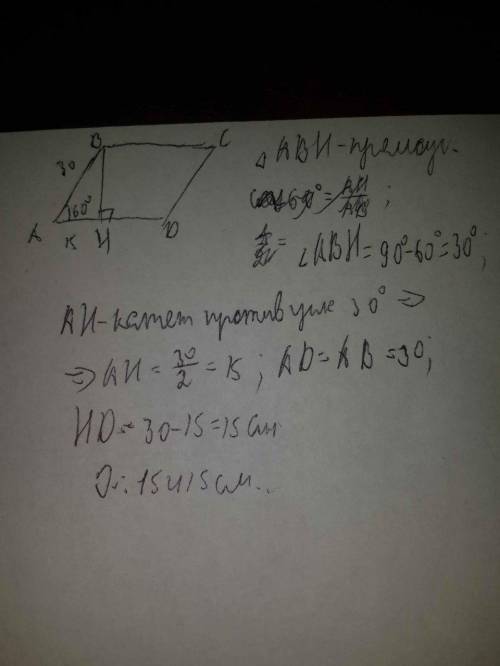 B C
30
60°
A 15 H D
△ ABH - прямоуг.
cos 60° = AH/AB ;
∠ABH = 90° - 60° = 30° ;
AH - катет против угла 30° ⇒
⇒ AH = 30/2 = 15 ; AD = AB = 30 ;
HD = 30 - 15 = 15 см
О: 15 и 15 см.